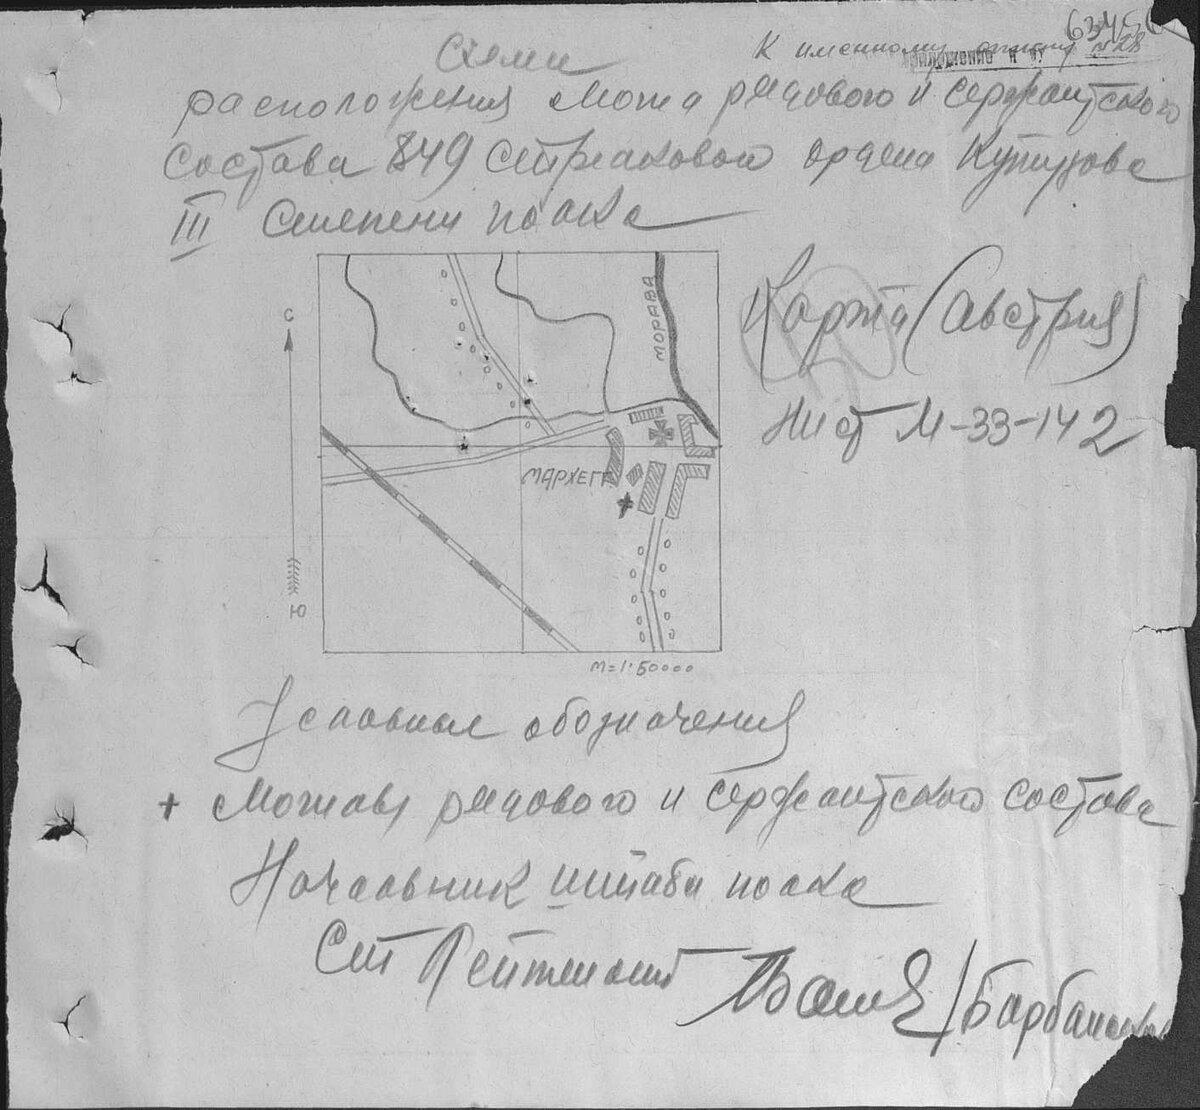 63456
К именному списку №28
Приложение к
Схема
расположения могил рядового и сержантского
состава 849 стрелкового ордена Кутузова
III степени полка
Карта (Австрия)
Лист М-33-142
С
МОРАВА
МАРХЕГГ
Ю
М=1:50000
Условные обозначения
+ Могилы рядового и сержантского состава
Начальник штаба полка
Ст Лейтенант
/Барбанска